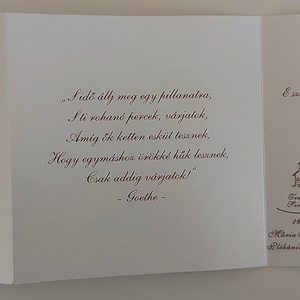 „S idő állj meg egy pillanatra,
S ti rohanó percek, várjatok,
Amíg ők ketten esküt tesznek,
Hogy egymáshoz örökké hűk lesznek,
Csak addig várjatok!"
- Goethe -
Mária